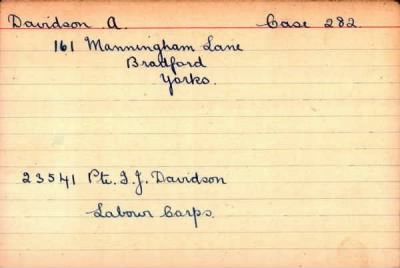 Davidson A. Case 282.
161 Manningham Lane
Bradford
Yorks.
23541 Pte. J.J. Davidson
Labour Corps.